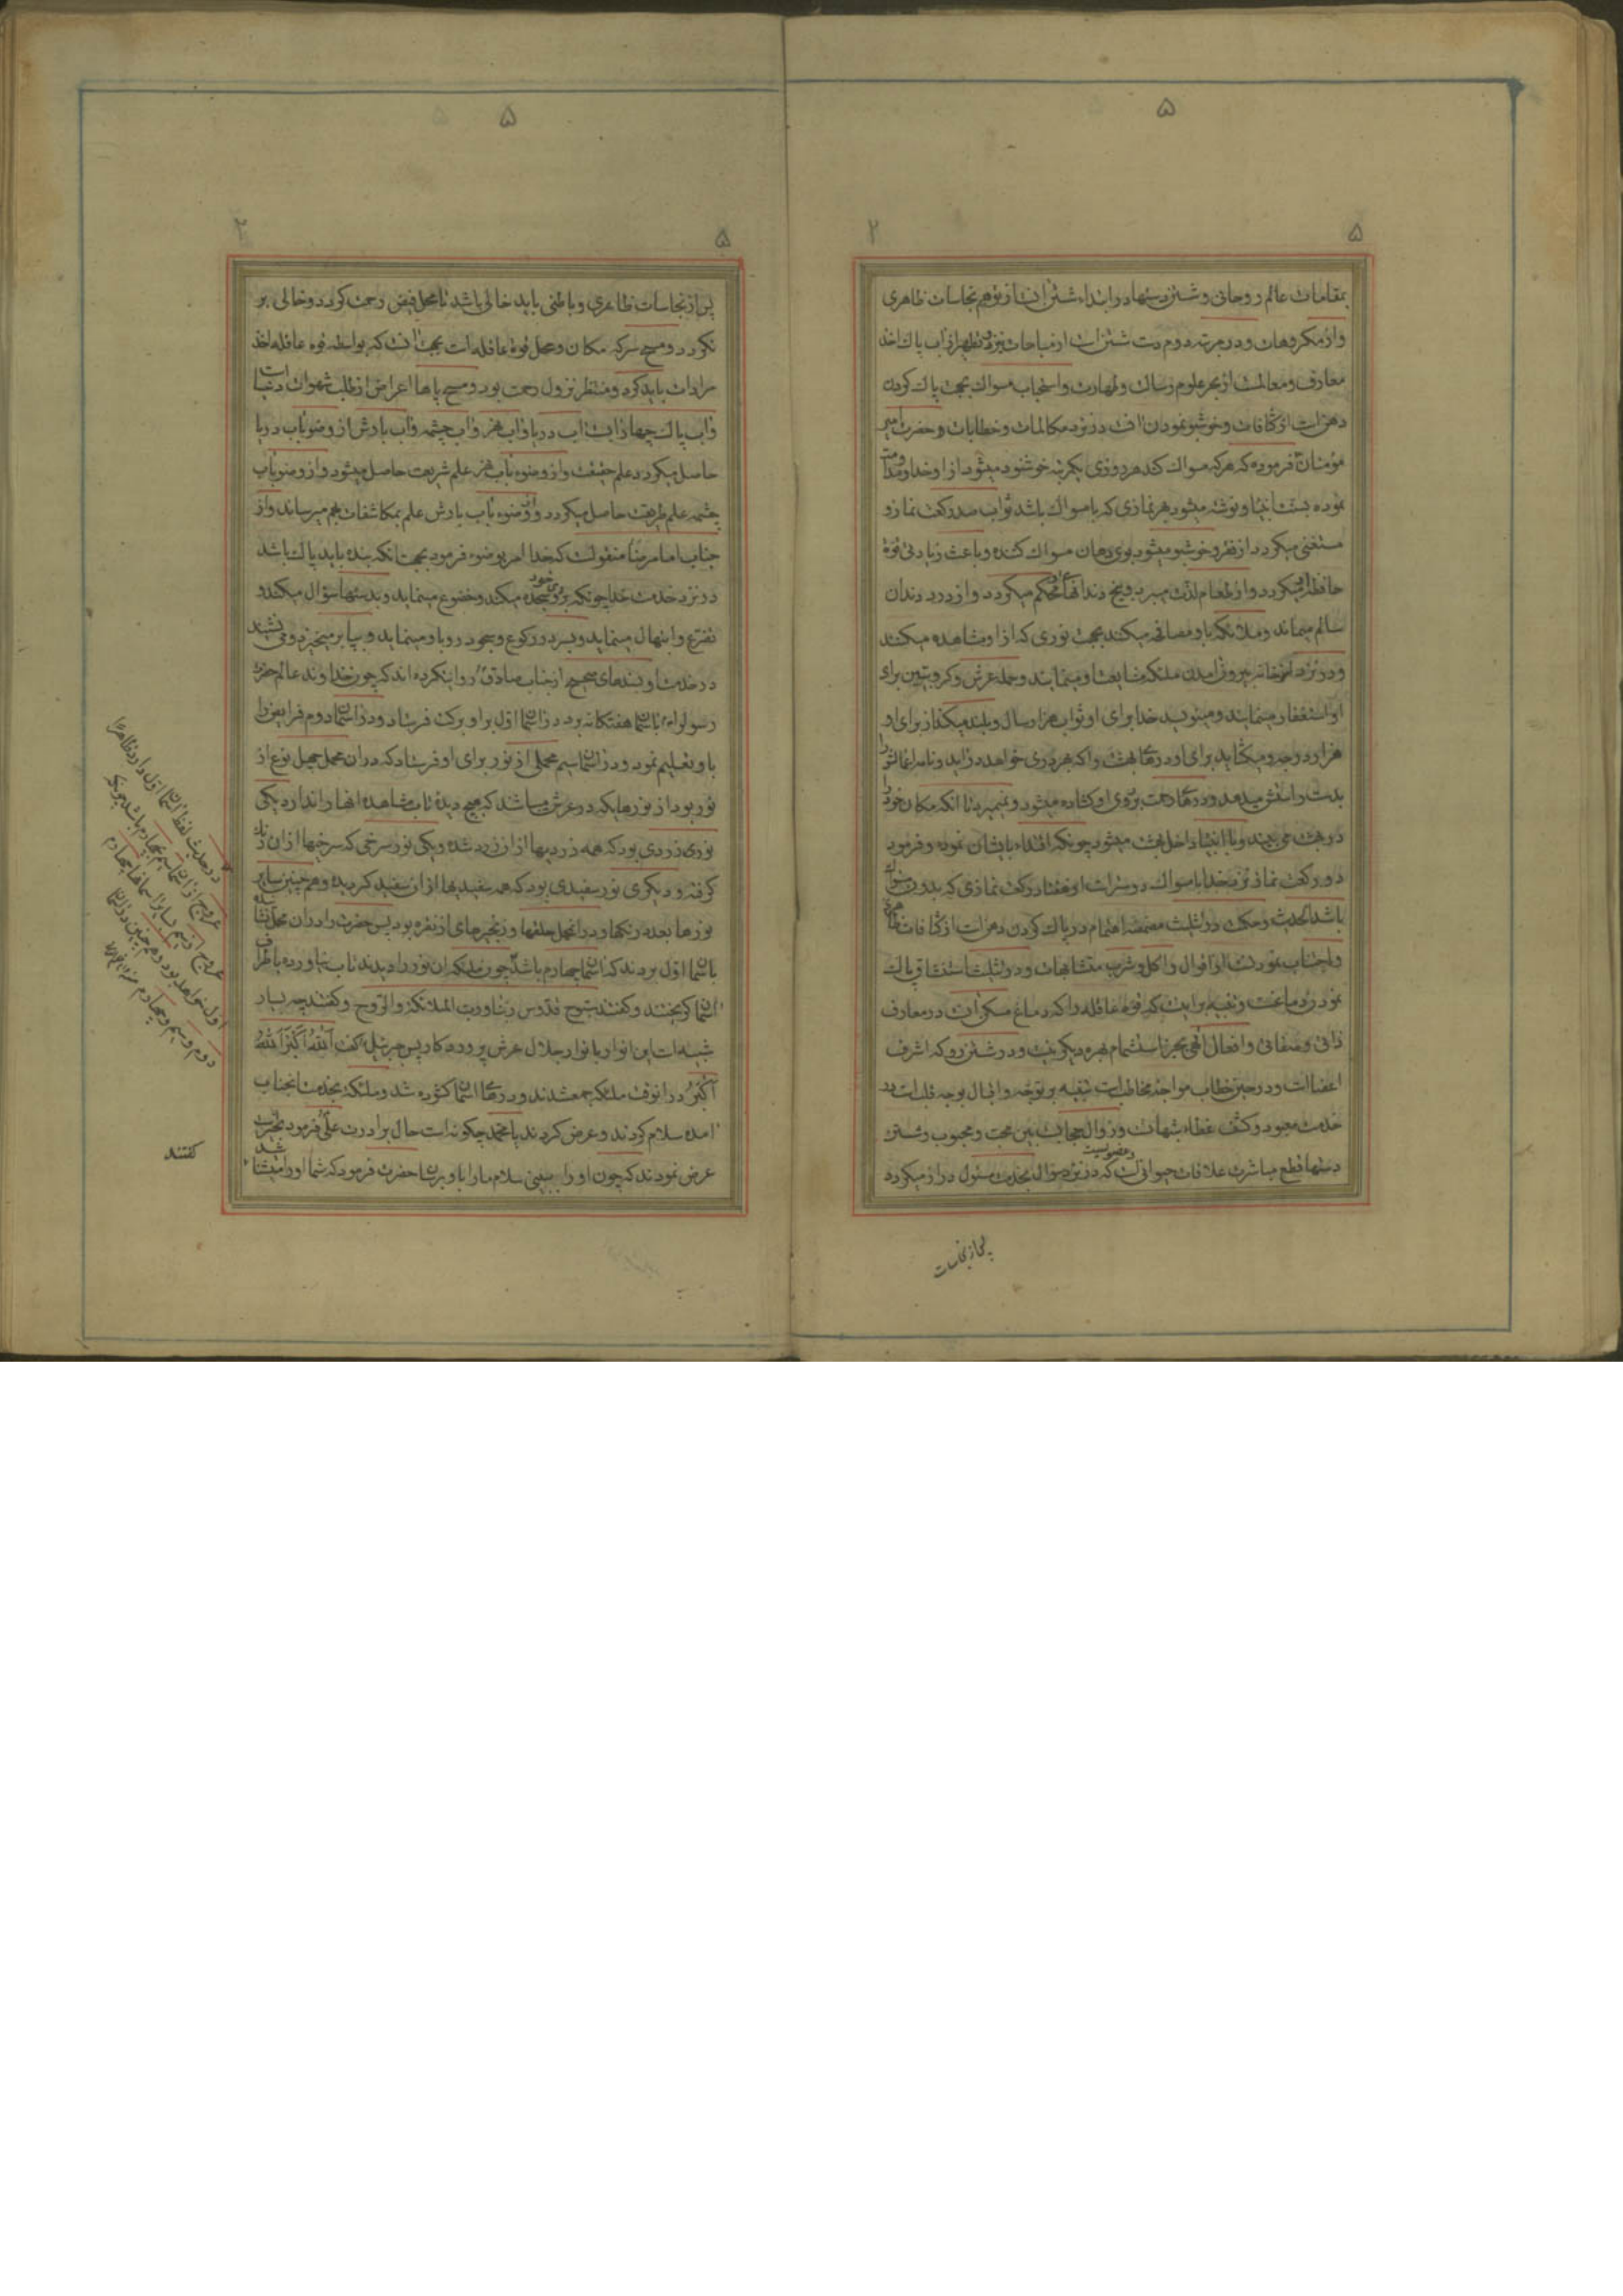 ۵
۵ ۲
بمقامات عالم روحانی و شستن دستها در ابتداء شستن آنست از توهم نجاسات ظاهری
و از مکروهات و در مرتبه دوم دست شستن است از مباحات نیز و تطهر از آب پاک اخذ
معارف و معالمست از بحر علوم رسالت و طهارت و استحباب مسواک بجهت پاک کردن
دهن است از کثافات و خوشبو نمودن آنست در نزد مکالمات و خطابات و حضرت امیر
مؤمنان فرموده که هر که مسواک کند هر روزی یکمرتبه خوشنود میشود از او خدا و مداومت
نموده بسنت انبیا و نوشته میشود هر نمازی که با مسواک باشد ثواب صد رکعت نماز و
مستغنی میگردد از فقر و خوشبو میشود بوی دهان مسواک کننده و باعث زیادتی قوة
حافظه او میگردد و از طعام لذت میبرد و بیخ دندانهای او محکم میگردد و از درد دندان
سالم میماند و ملائکه با او مصافحه میکنند بجهت نوری که از او مشاهده میکنند
و در نزد از خانه بیرون آمدن ملئکه مشایعت او مینمایند و حمله عرش و کروبیین برای
او استغفار مینمایند و مینویسد خدا برای او ثواب هزار سال و بلند میکند از برای او
هزار درجه و میگشاید برای او درهای بهشت را که بهر دری خواهد در آید و نامه اعمالش را
بدست راستش میدهد و درهای رحمت بروی او گشاده میشود و نمیمیرد تا آنکه مکان خود را
در بهشت می بیند و با انبیا داخل بهشت میشود چونکه اقتداء بایشان نموده و فرمود
دو رکعت نماز نزد خدا با مسواک دوستر است از هفتاد رکعت نمازی که بدون مسواک
باشد الحدیث و حکمت در تثلیث مضمضه اهتمام در پاک کردن دهن است از کثافات ظاهری
و اجتناب نمودنست از اقوال و اکل و شرب مشتبهات و در تثلیث استنشاق پاک
نمودن دماغست و تنبیه بر اینست که قوه عاقله را که دماغ مسکن آنست در معارف
ذاتی و صفاتی و افعال الهی بجز استشمام بهره دیگر نیست و در شستن رو که اشرف
اعضا است و در حین خطاب مواجه مخاطب است تنبیه بر توجه و اقبال بوجه قلب است در
خدمت معبود و کشف غطاء شبهات و زوال حجابست بین محب و محبوب و شستن
دستها قطع مباشرت علاقات حیوانی است که در نزد سؤال بخدمت مسئول دراز میگردد
پس از نجاسات
۵
۵ ۲
پس از نجاسات ظاهری و باطنی باید خالی باشد تا محل فیض رحمت گردد و خالی بر
نگردد و مسح سر که مکان و محل قوة عاقله است بجهت آنست که بواسطه قوه عاقله اخذ
مرادات باید کرد و منتظر نزول رحمت بود و مسح پاها اعراض از طلب شهوات دنیا است
و آب پاک چهار آبست آب دریا و آب نهر و آب چشمه و آب بارش از وضو بآب دریا
حاصل میگردد علم حقیقت و از وضوء بآب نهر علم شریعت حاصل میشود و از وضو بآب
چشمه علم طریقت حاصل میگردد و از وضوء بآب بارش علم بمکاشفات بهم میرساند و از
جناب امام رضا منقولست که خدا امر بوضوء فرمود بجهت آنکه بنده باید پاک باشد
در نزد خدمت خدا چونکه بروی خود سجده میکند و خضوع مینماید و بدستها سؤال میکند و
تضرع و ابتهال مینماید و بسر در رکوع و سجود رو باو مینماید و بپا برمیخیزد و می نشیند
در خدمت او بسندهای صحیح از جناب صادق روایت کرده اند که چون خداوند عالم حضرت
رسول را بآسمان هفتگانه برد در آسمان اول بر او برکت فرستاد و در آسمان دوم فرایض را
باو تعلیم نمود و در آسمان سیم محملی از نور برای او فرستاد که در آن محمل چهل نوع از
نور بود از نورهایکه در عرش میباشد که هیچ دیدۀ تاب مشاهده آنها را ندارد یکی
نوری زردی بود که همه زردیها از آن زرد شده و یکی نور سرخی که سرخیها از آن رنگ
گرفته و دیگری نور سفیدی بود که همه سفیدیها از آن سفید گردیده و هم چنین سایر
نورها بعدد رنگها و در آنمحمل حلقها و زنجیرهای از نقره بود پس حضرت را در آن محمل نشانده
بآسمان اول بردند که آسمان چهارم باشد چون ملئکه آن نور را دیدند تاب نیاورده باطراف
آسمان گریختند و گفتند سبوح قدوس ربنا و رب الملائکة و الروح و گفتند چه بسیار
شبیه است این انوار بانوار جلال عرش پروردگار پس جبرئیل گفت اَللّٰهُ اَکْبَرُ اَللّٰهُ
اَکْبَرُ در آنوقت ملئکه جمع شدند و درهای آسمان گشوده شد و ملئکه بخدمت آنجناب
آمده سلام کردند و عرض کردند یا محمد چگونه است حال برادرت علی فرمود بخیر است
عرض نمودند که چون او را ببینی سلام ما را باو برسان حضرت فرمود که شما او را میشناسید
گفتند
در حدیث لفظ آسمان اول دارد ظاهرا
عروج از آسمان سیم بچهارم باشد چونکه
عروج از سیم نسبت بآسمانها چهارم
اول خواهد بود و هم چنین در آسمان
دوم و سیم و چهارم